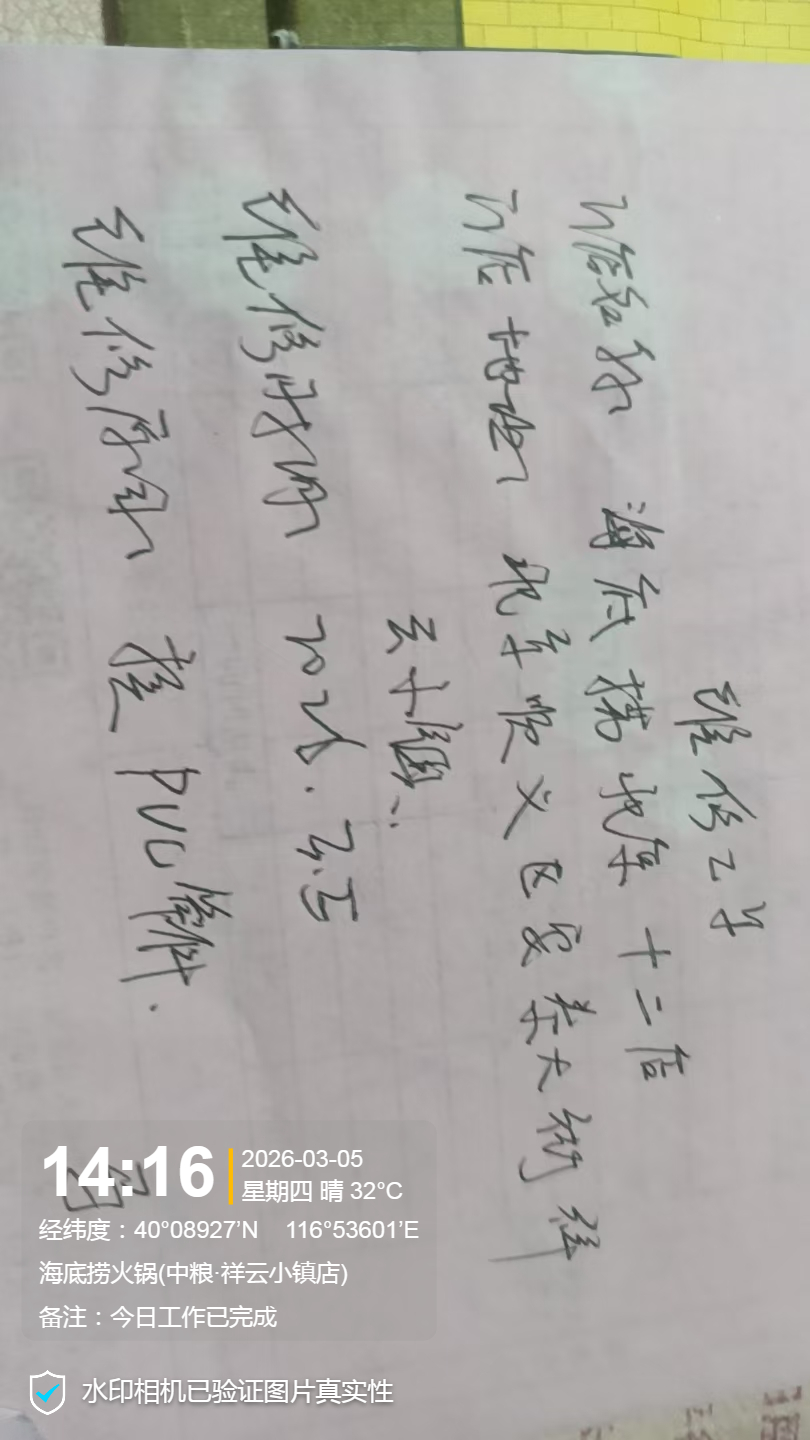 维修工单
门店名称 海底捞北京十二店
门店地址 北京顺义区安泰大街祥
云小镇
维修时间 2026.3.5
维修原因 PVC管件.
14:16
2026-03-05
星期四 晴 32°C
经纬度：40°08927′N 116°53601′E
海底捞火锅(中粮·祥云小镇店)
备注：今日工作已完成
水印相机已验证图片真实性